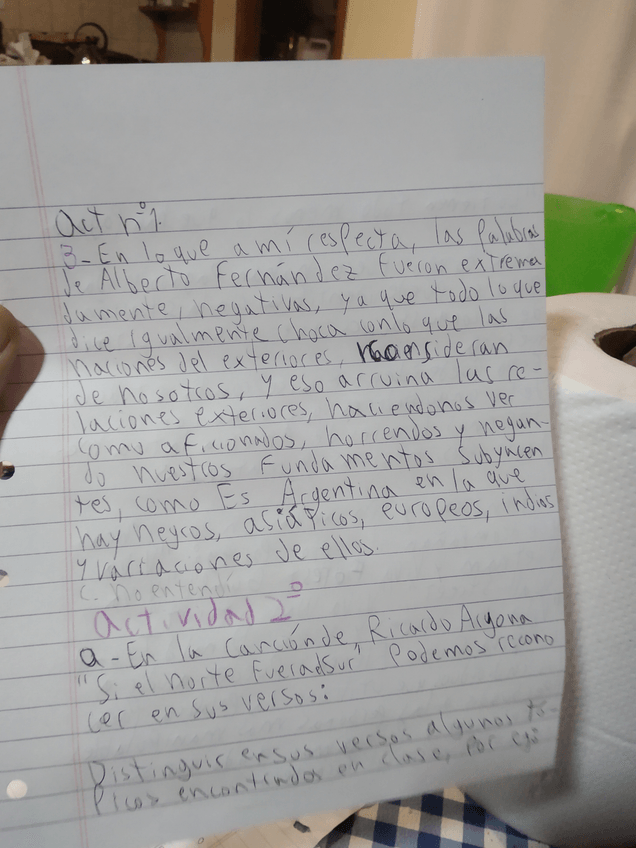 Act nº1.
3-En lo que a mí respecta, las Palabras
de Alberto Fernández fueron extrema
damente, negativas, ya que todo lo que
dice igualmente choca con lo que las
naciones del exteriores, consideran
de nosotros, y eso arruina las re-
laciones exteriores, haciendonos ver
como aficionados, horrendos y negan-
do nuestros Fundamentos subyacen
tes, como Es Argentina en la que
hay negros, asiáticos, europeos, indios
y variaciones de ellos.
c. no entendí
Actividad 2º
a-En la canciónde, Ricardo Arjona
"Si el norte fuera sur" Podemos recono
cer en sus versos:
Distinguir en sus versos algunos tó-
Picos encontrados en clase, Por eje